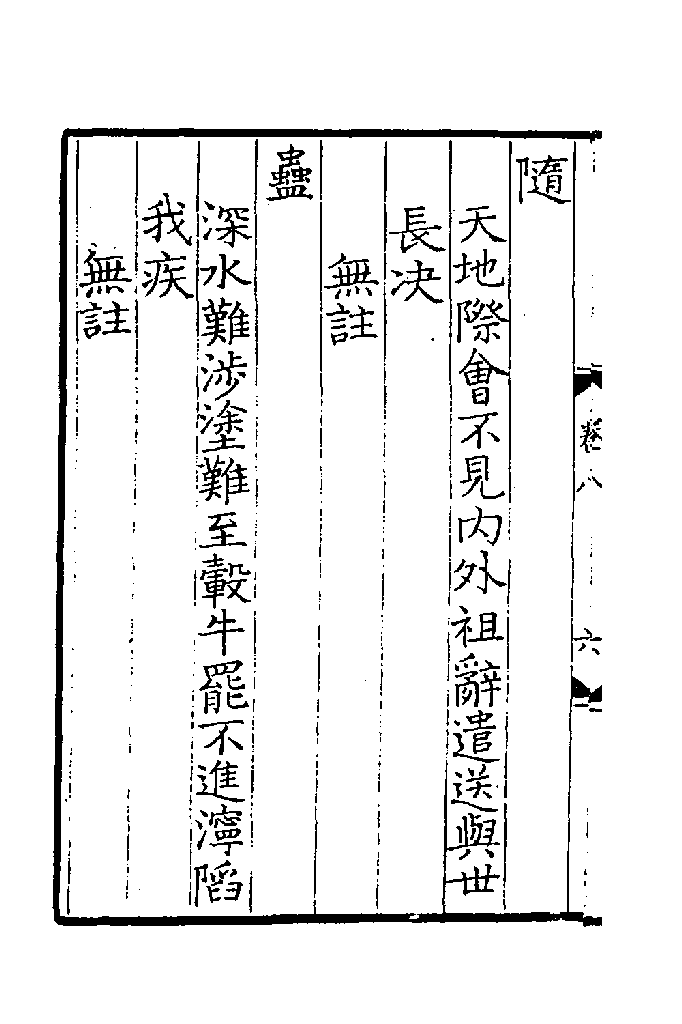 隨
天地際會不見内外祖辭遣送與世
長决
無註
蠱
深水難涉塗難至轂牛罷不進濘陷
我疾
無註
卷八
六